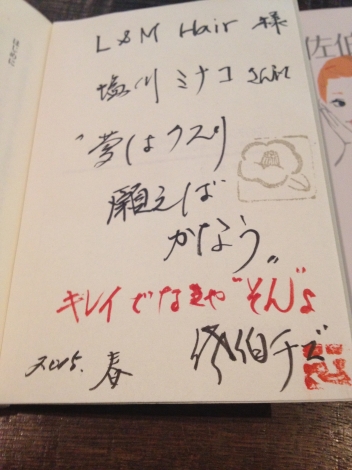 L&M Hair 様
塩川 ミナコ さんへ
"夢はクスリ
願えば
かなう"
キレイでなきゃ"そん"よ
2015. 春
佐伯チズ
佐伯
はじめに